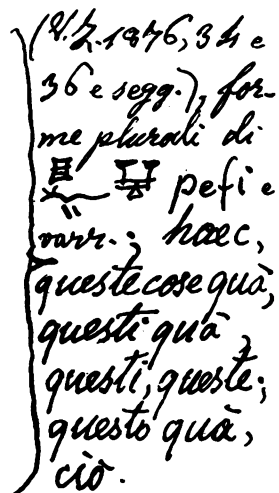 (V. Z. 1876, 34 e
36 e segg.), for-
me plurali di
pefi e
varr.; haec,
queste cose quà,
questi quà,
questi, queste;
questo quà,
ciò.